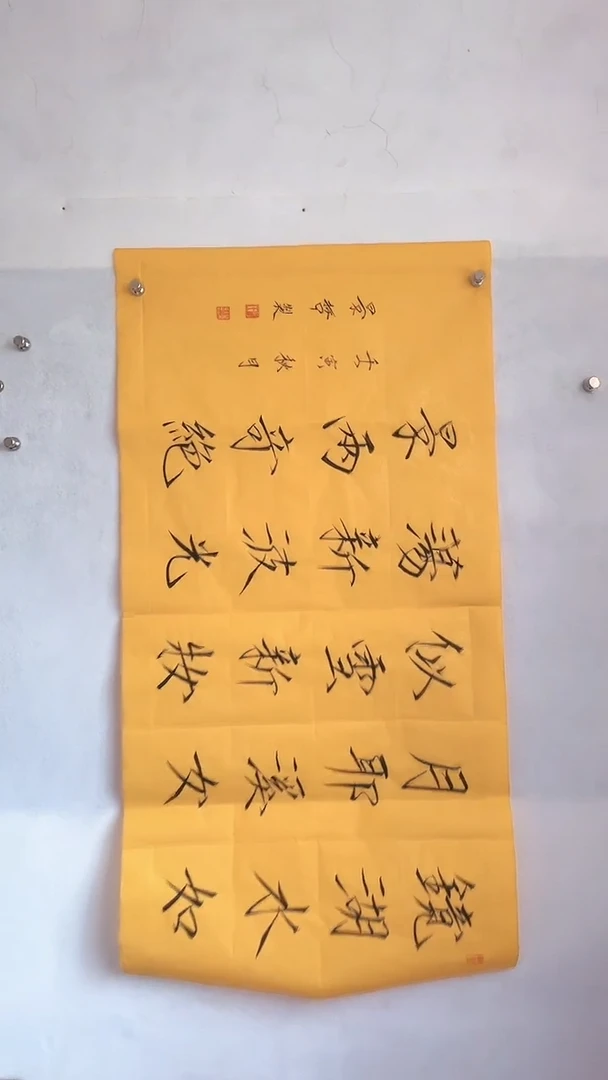 鏡湖水如
月耶溪女
似雪新妝
蕩新波光
景兩竒絕
壬寅秋月
景哲製